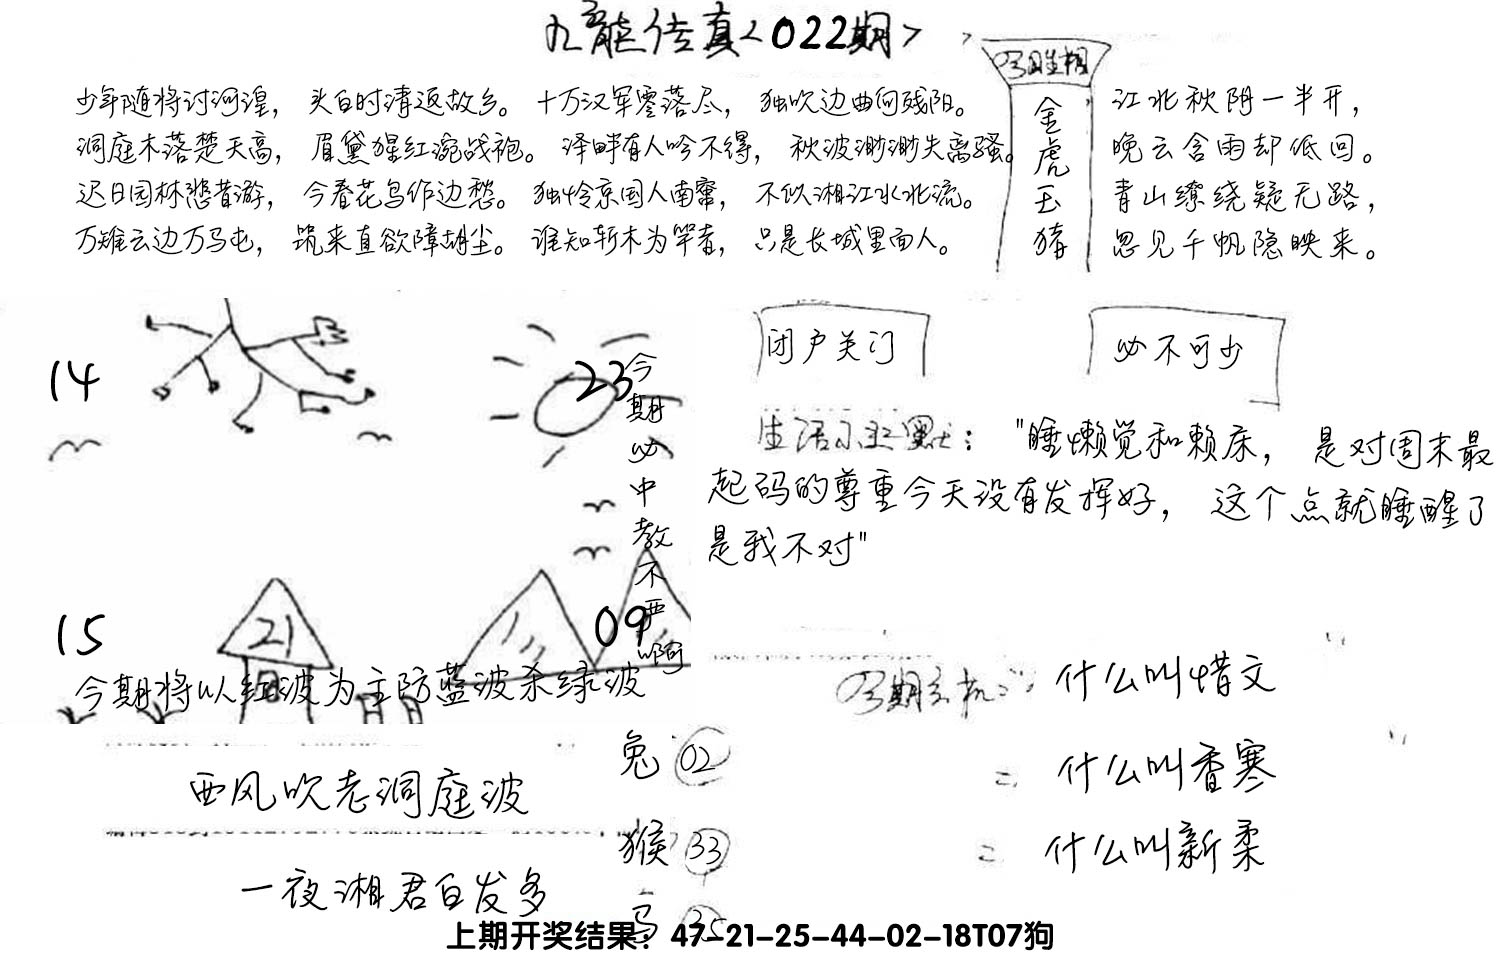 九龍传真<022期>
少年随将讨河湟，头白时清返故乡。十万汉军零落尽，独吹边曲向残阳。
洞庭木落楚天高，眉黛猩红涴战袍。泽畔有人吟不得，秋波渺渺失离骚。
迟日园林悲昔游，今春花鸟作边愁。独怜京国人南窜，不似湘江水北流。
万雉云边万马屯，筑来直欲障胡尘。谁知斩木为竿者，只是长城里面人。
金虎玉猪
江北秋阴一半开，
晚云含雨却低回。
青山缭绕疑无路，
忽见千帆隐映来。
14
23
今期必中教不严啊
15
21
09
今期将以红波为主防蓝波杀绿波
闭户关门
必不可少
"睡懒觉和赖床，是对周末最
起码的尊重今天没有发挥好，这个点就睡醒了
是我不对"
什么叫惜文
什么叫香寒
什么叫新柔
西风吹老洞庭波
一夜湘君白发多
兔 02
猴 33
马 35
上期开奖结果：47-21-25-44-02-18T07狗